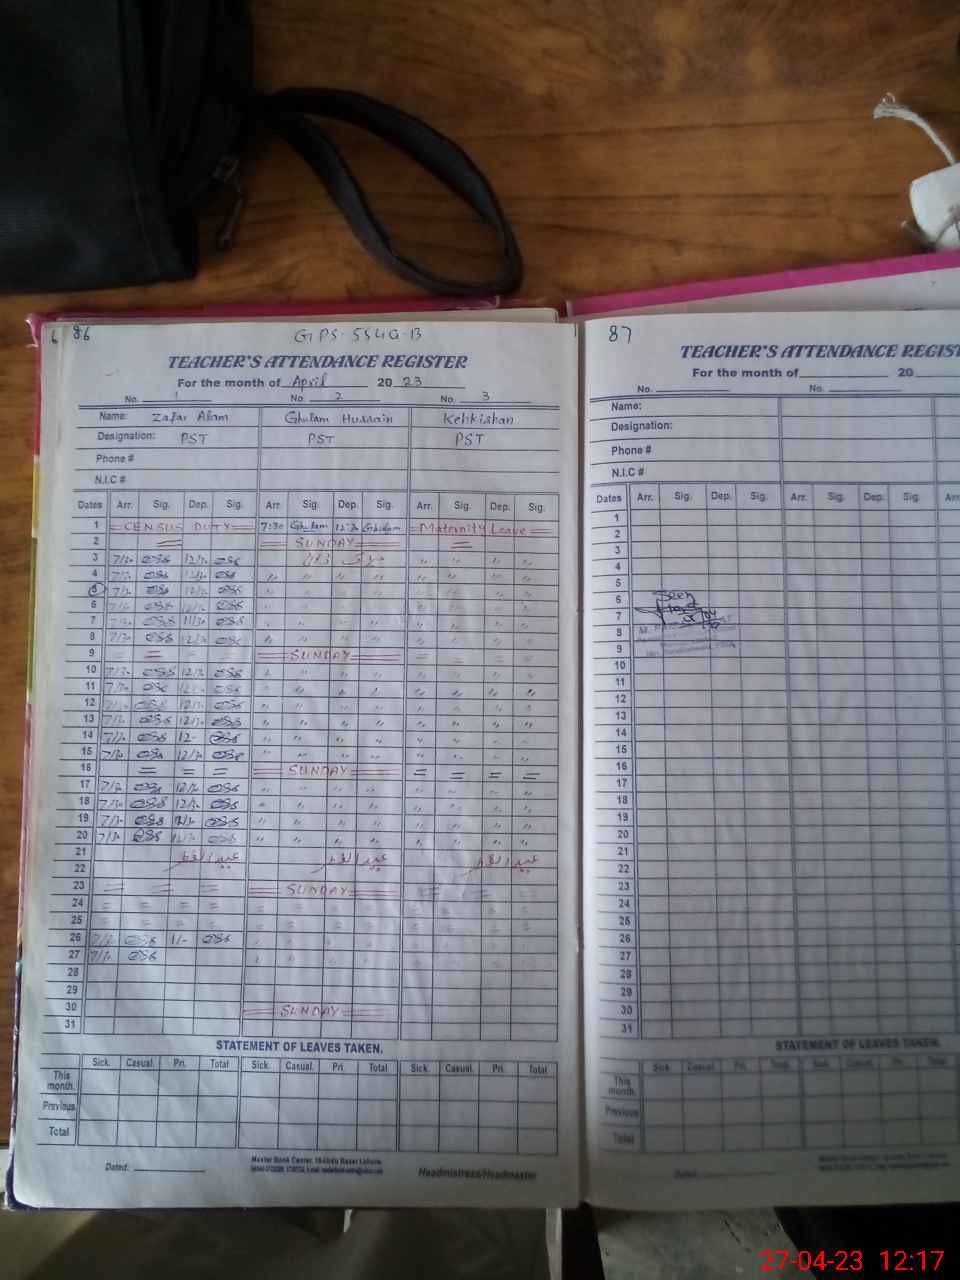 6 86 GPS-55LG-B
TEACHER'S ATTENDANCE REGISTER
For the month of April 20 23
No. 1 No 2 No. 3
Name: Zafar Alam Ghulam Hussain Kehkishan
Designation: PST PST PST
Phone #
N.I.C #
Dates Arr. Sig. Dep. Sig. Arr. Sig. Dep. Sig. Arr. Sig. Dep. Sig.
1 CENSUS DUTY 7:30 Ghulam 12:30 Ghulam Maternity Leave
2 SUNDAY
3 7/30 12/30 〃 〃 〃 〃
4 7/30 12/30 〃 〃 〃 〃 〃 〃 〃 〃
5 7/30 12/30 〃 〃 〃 〃 〃 〃 〃 〃
6 7/30 12/30 〃 〃 〃 〃 〃 〃 〃 〃
7 7/30 11/30 〃 〃 〃 〃 〃 〃 〃 〃
8 7/30 12/30 〃 〃 〃 〃 〃 〃 〃 〃
9 SUNDAY
10 7/30 12/30 〃 〃 〃 〃 〃 〃 〃 〃
11 7/30 12/30 〃 〃 〃 〃 〃 〃 〃 〃
12 7/30 12/30 〃 〃 〃 〃 〃 〃 〃 〃
13 7/30 12/30 〃 〃 〃 〃 〃 〃 〃 〃
14 7/30 12- 〃 〃 〃 〃 〃 〃 〃 〃
15 7/30 12/30 〃 〃 〃 〃 〃 〃 〃 〃
16 = = = SUNDAY = = = =
17 7/30 12/30 〃 〃 〃 〃 〃 〃 〃 〃
18 7/30 12/30 〃 〃 〃 〃 〃 〃 〃 〃
19 7/30 12/30 〃 〃 〃 〃 〃 〃 〃 〃
20 7/30 12/30 〃 〃 〃 〃 〃 〃 〃 〃
21 عید الفطر عید الفطر عید الفطر
22
23 = = = SUNDAY
24 = = = =
25 = = = =
26 7/30 1/-
27 7/30
28
29
30 SUNDAY
31
STATEMENT OF LEAVES TAKEN.
Sick. Casual. Pri. Total Sick. Casual. Pri. Total Sick. Casual. Pri. Total
This month.
Previous
Total
Dated:
Master Book Center, 16-Urdu Bazar Lahore
Headmistress/Headmaster
87
TEACHER'S ATTENDANCE REGIST
For the month of 20
No. No.
Name:
Designation:
Phone #
N.I.C #
Dates Arr. Sig. Dep. Sig. Arr. Sig. Dep. Sig. Arr.
1
2
3
4
5
6 Seen
7
8
9
10
11
12
13
14
15
16
17
18
19
20
21
22
23
24
25
26
27
28
29
30
31
STATEMENT OF LEAVES TAKEN.
Sick Casual. Pri. Total Sick. Casual. Pri. Total
This month.
Previous
Total
Dated:
27-04-23 12:17